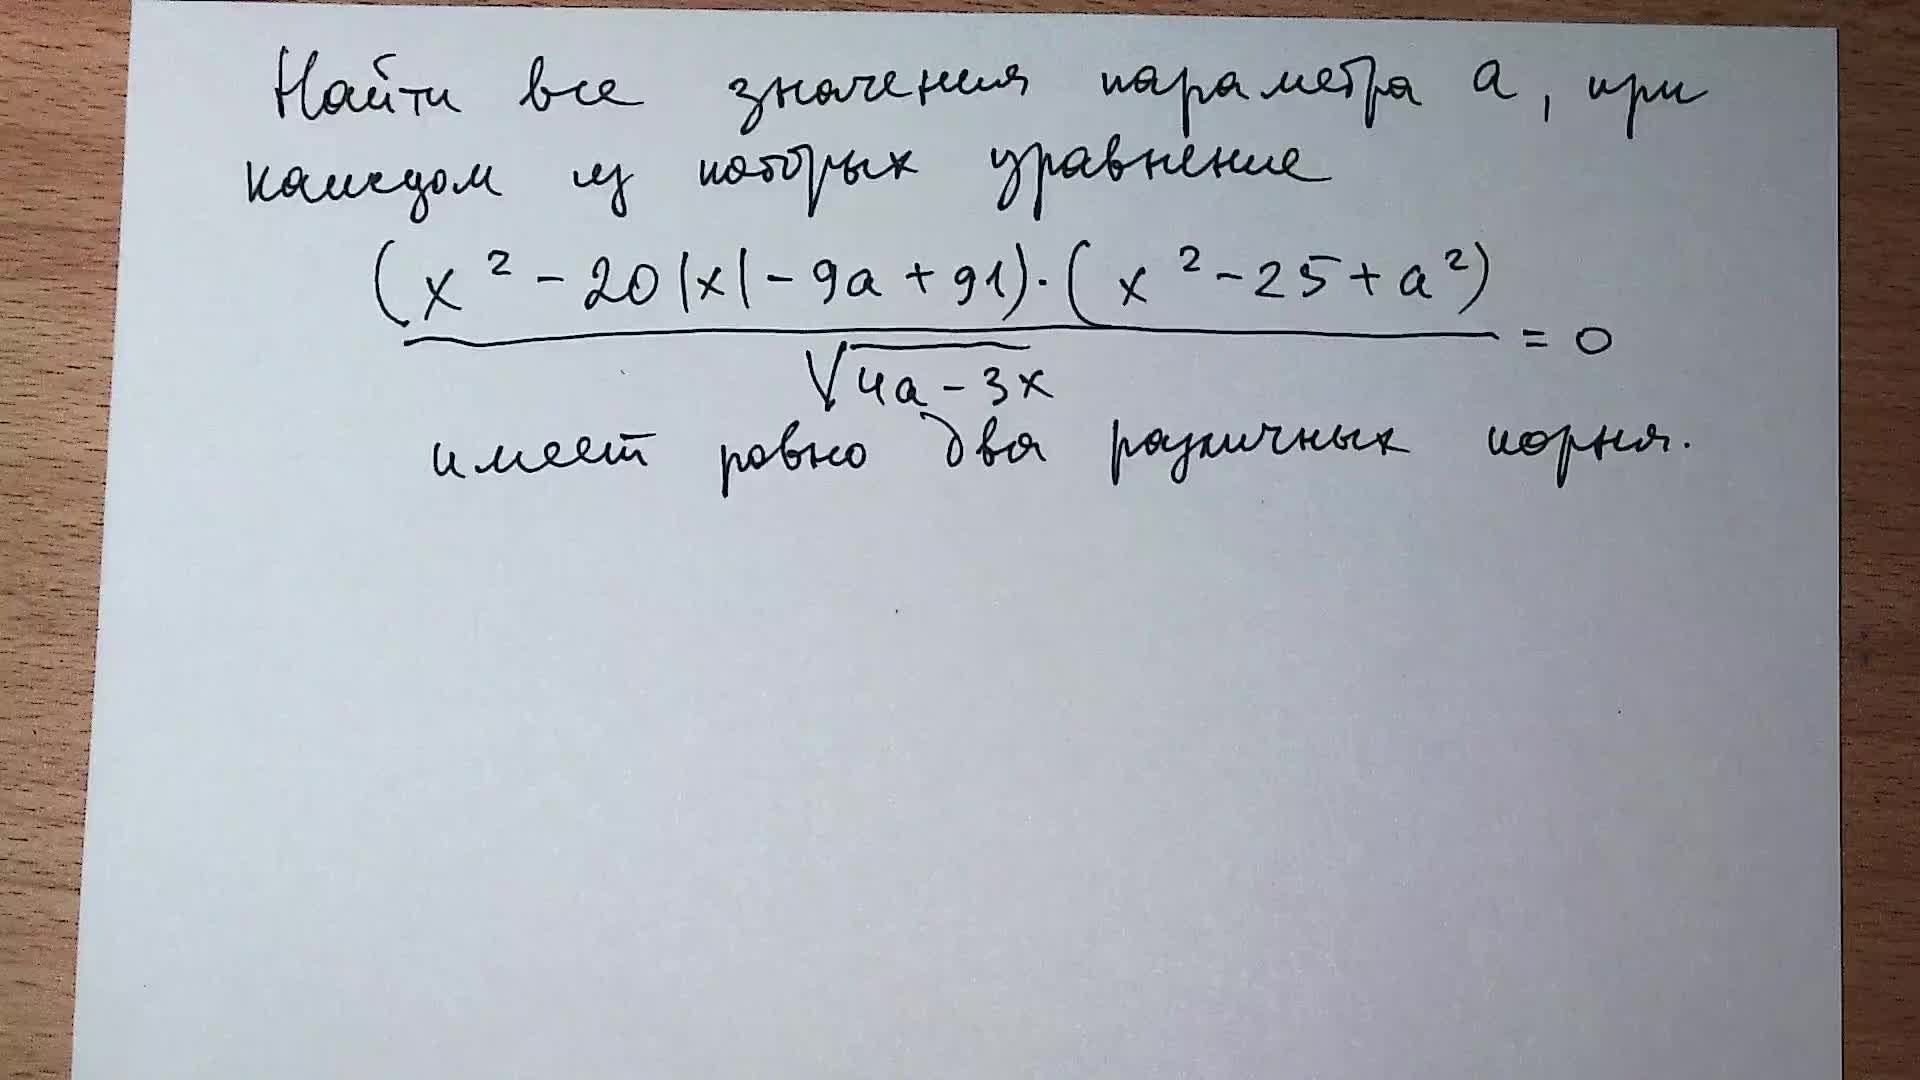 Найти все значения параметра a, при
каждом из которых уравнение
(x² - 20|x| - 9a + 91) · (x² - 25 + a²)
√4a - 3x = 0
имеет ровно два различных корня.